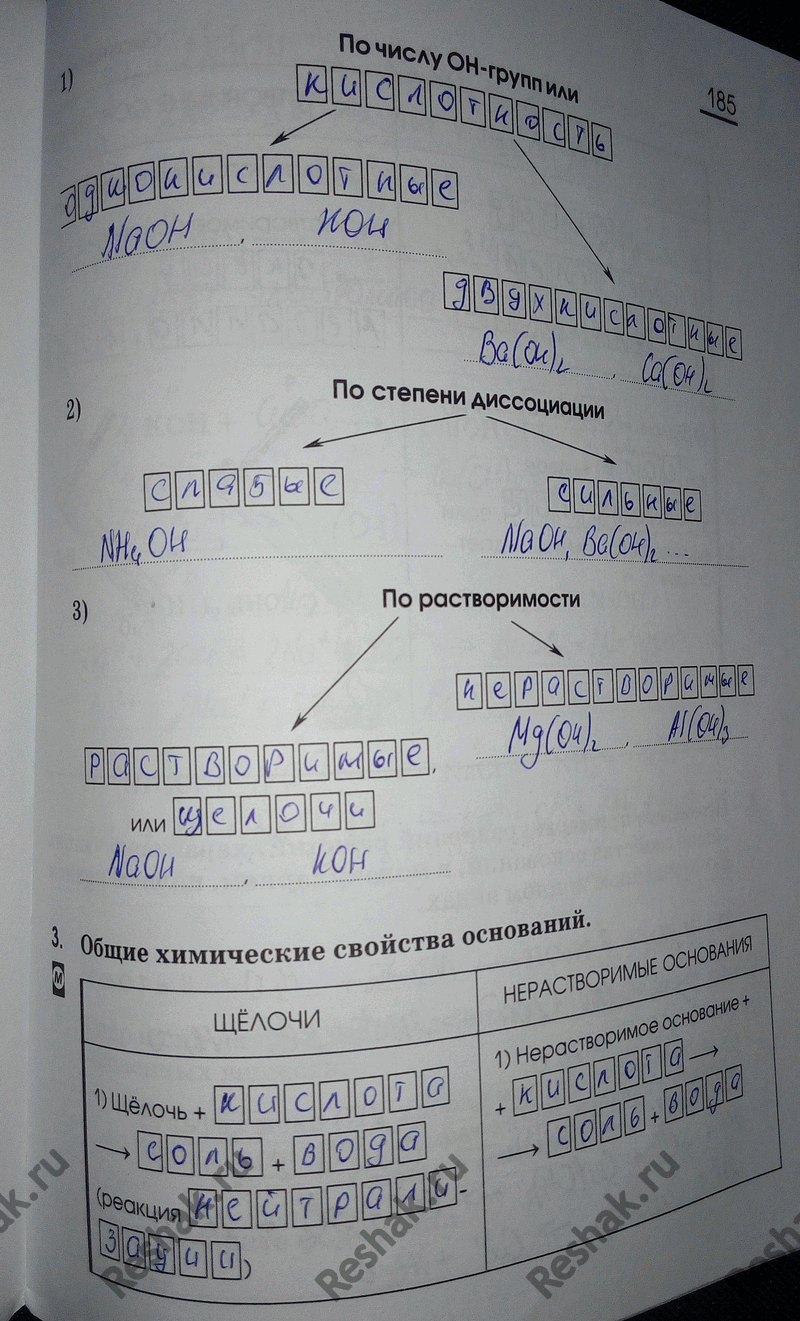 185
1)
По числу ОН-групп или
кислотность
однокислотные
NaOH, KOH
двухкислотные
Ba(OH)₂, Ca(OH)₂
2)
По степени диссоциации
слабые
сильные
NH₄OH
NaOH, Ba(OH)₂ ...
3)
По растворимости
нерастворимые
Mg(OH)₂, Al(OH)₃
растворимые,
или щелочи
NaOH, KOH
3. Общие химические свойства оснований.
М
ЩЁЛОЧИ
1) Щёлочь + кислота
→ соль + вода
(реакция нейтрали-
зации)
НЕРАСТВОРИМЫЕ ОСНОВАНИЯ
1) Нерастворимое основание +
+ кислота →
→ соль + вода
Reshak.ru
Reshak.ru
Reshak.ru